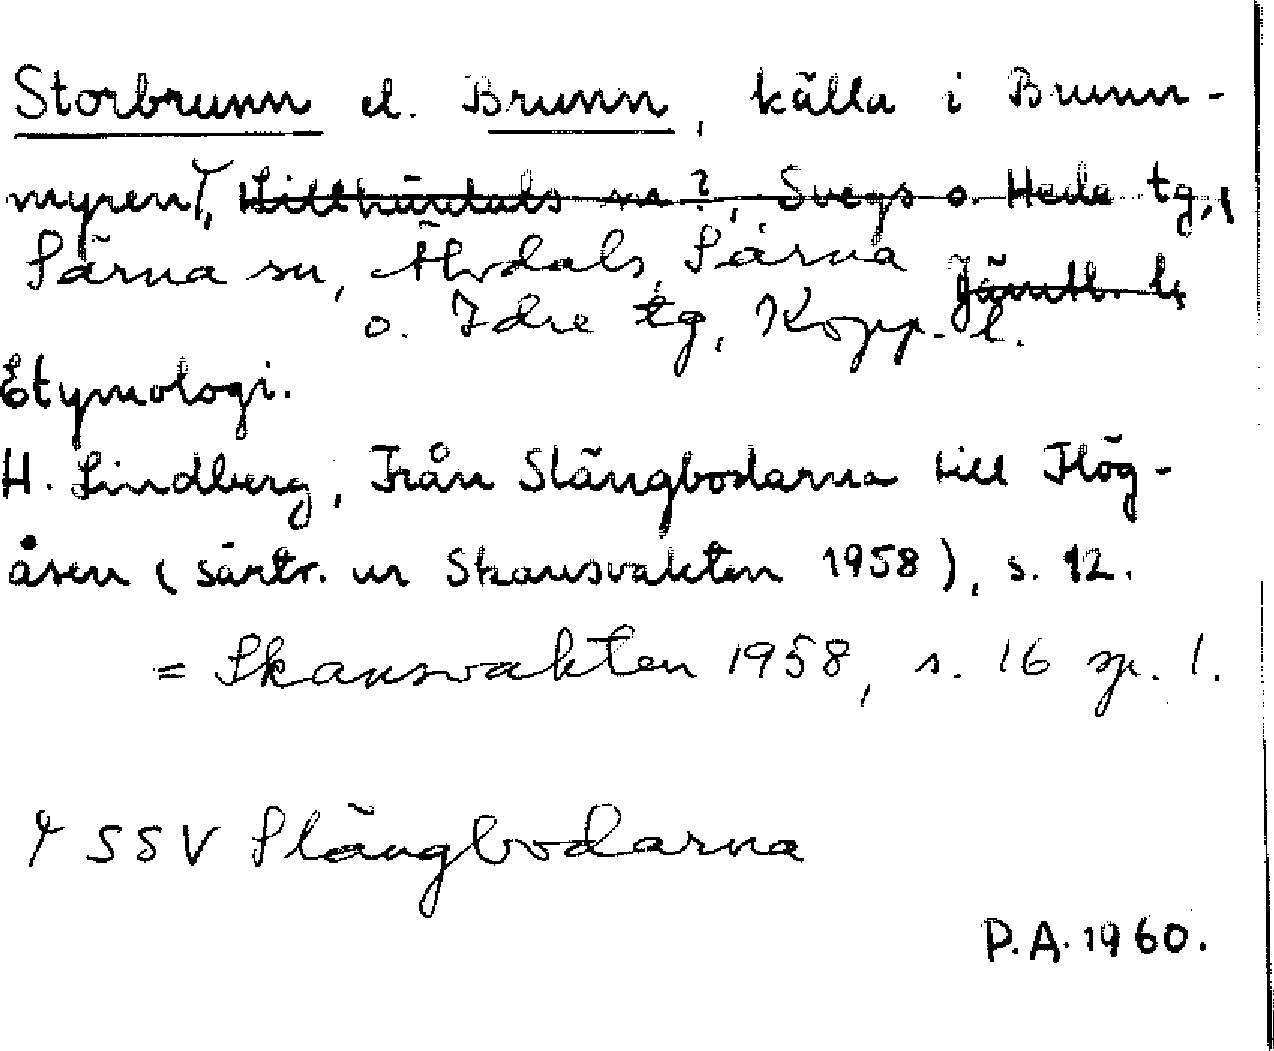 Storbrunn el. Brunn, källa i Brunn-
myren, Lillhärdals sn ?, Svegs o. Hede tg,
Särna sn, Älvdals, Särna Jämtl. l.
o. Idre tg, Kopp. l.
Etymologi.
H. Lindberg, Från Slängbodarna till Hög-
åsen (särtr. ur Skansvakten 1958), s. 12.
= Skansvakten 1958, s. 16 sp. 1.
SSV Slängbodarna
P.A. 1960.